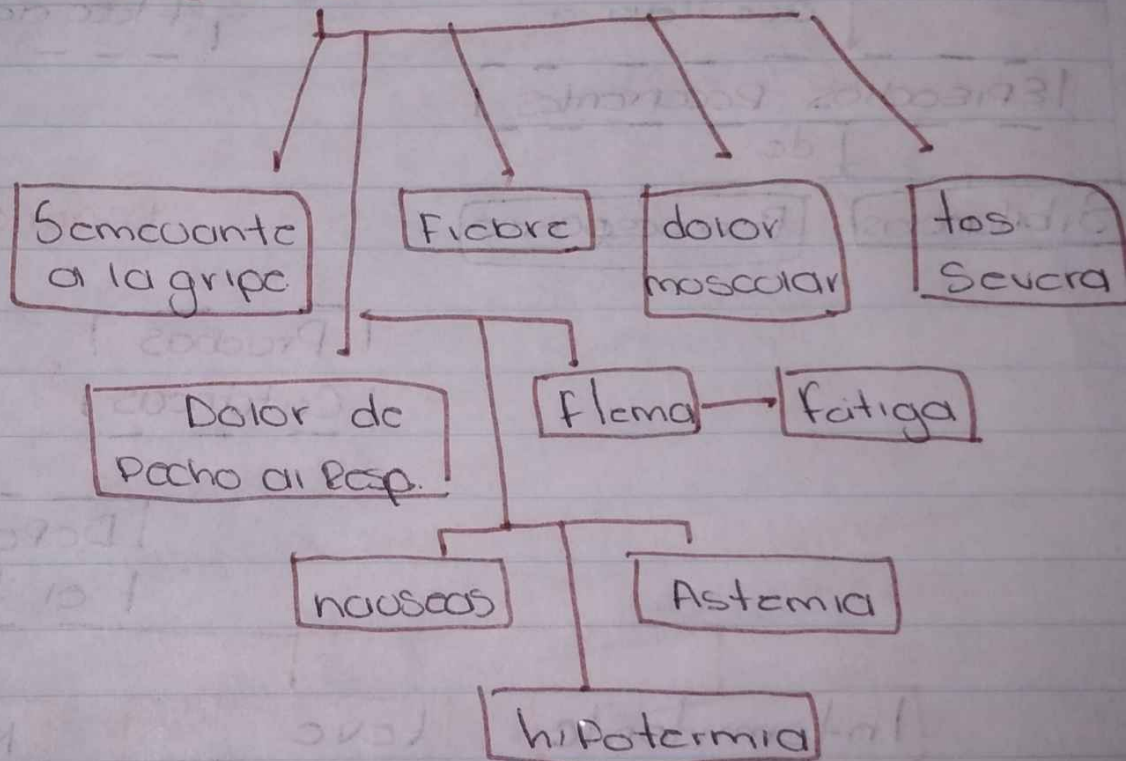 Semeuante
a la gripe
Fiebre
dolor
moscular
tos
Severa
Dolor de
Pecho al Resp.
flema
fatiga
nauseas
Astemia
hipotermia